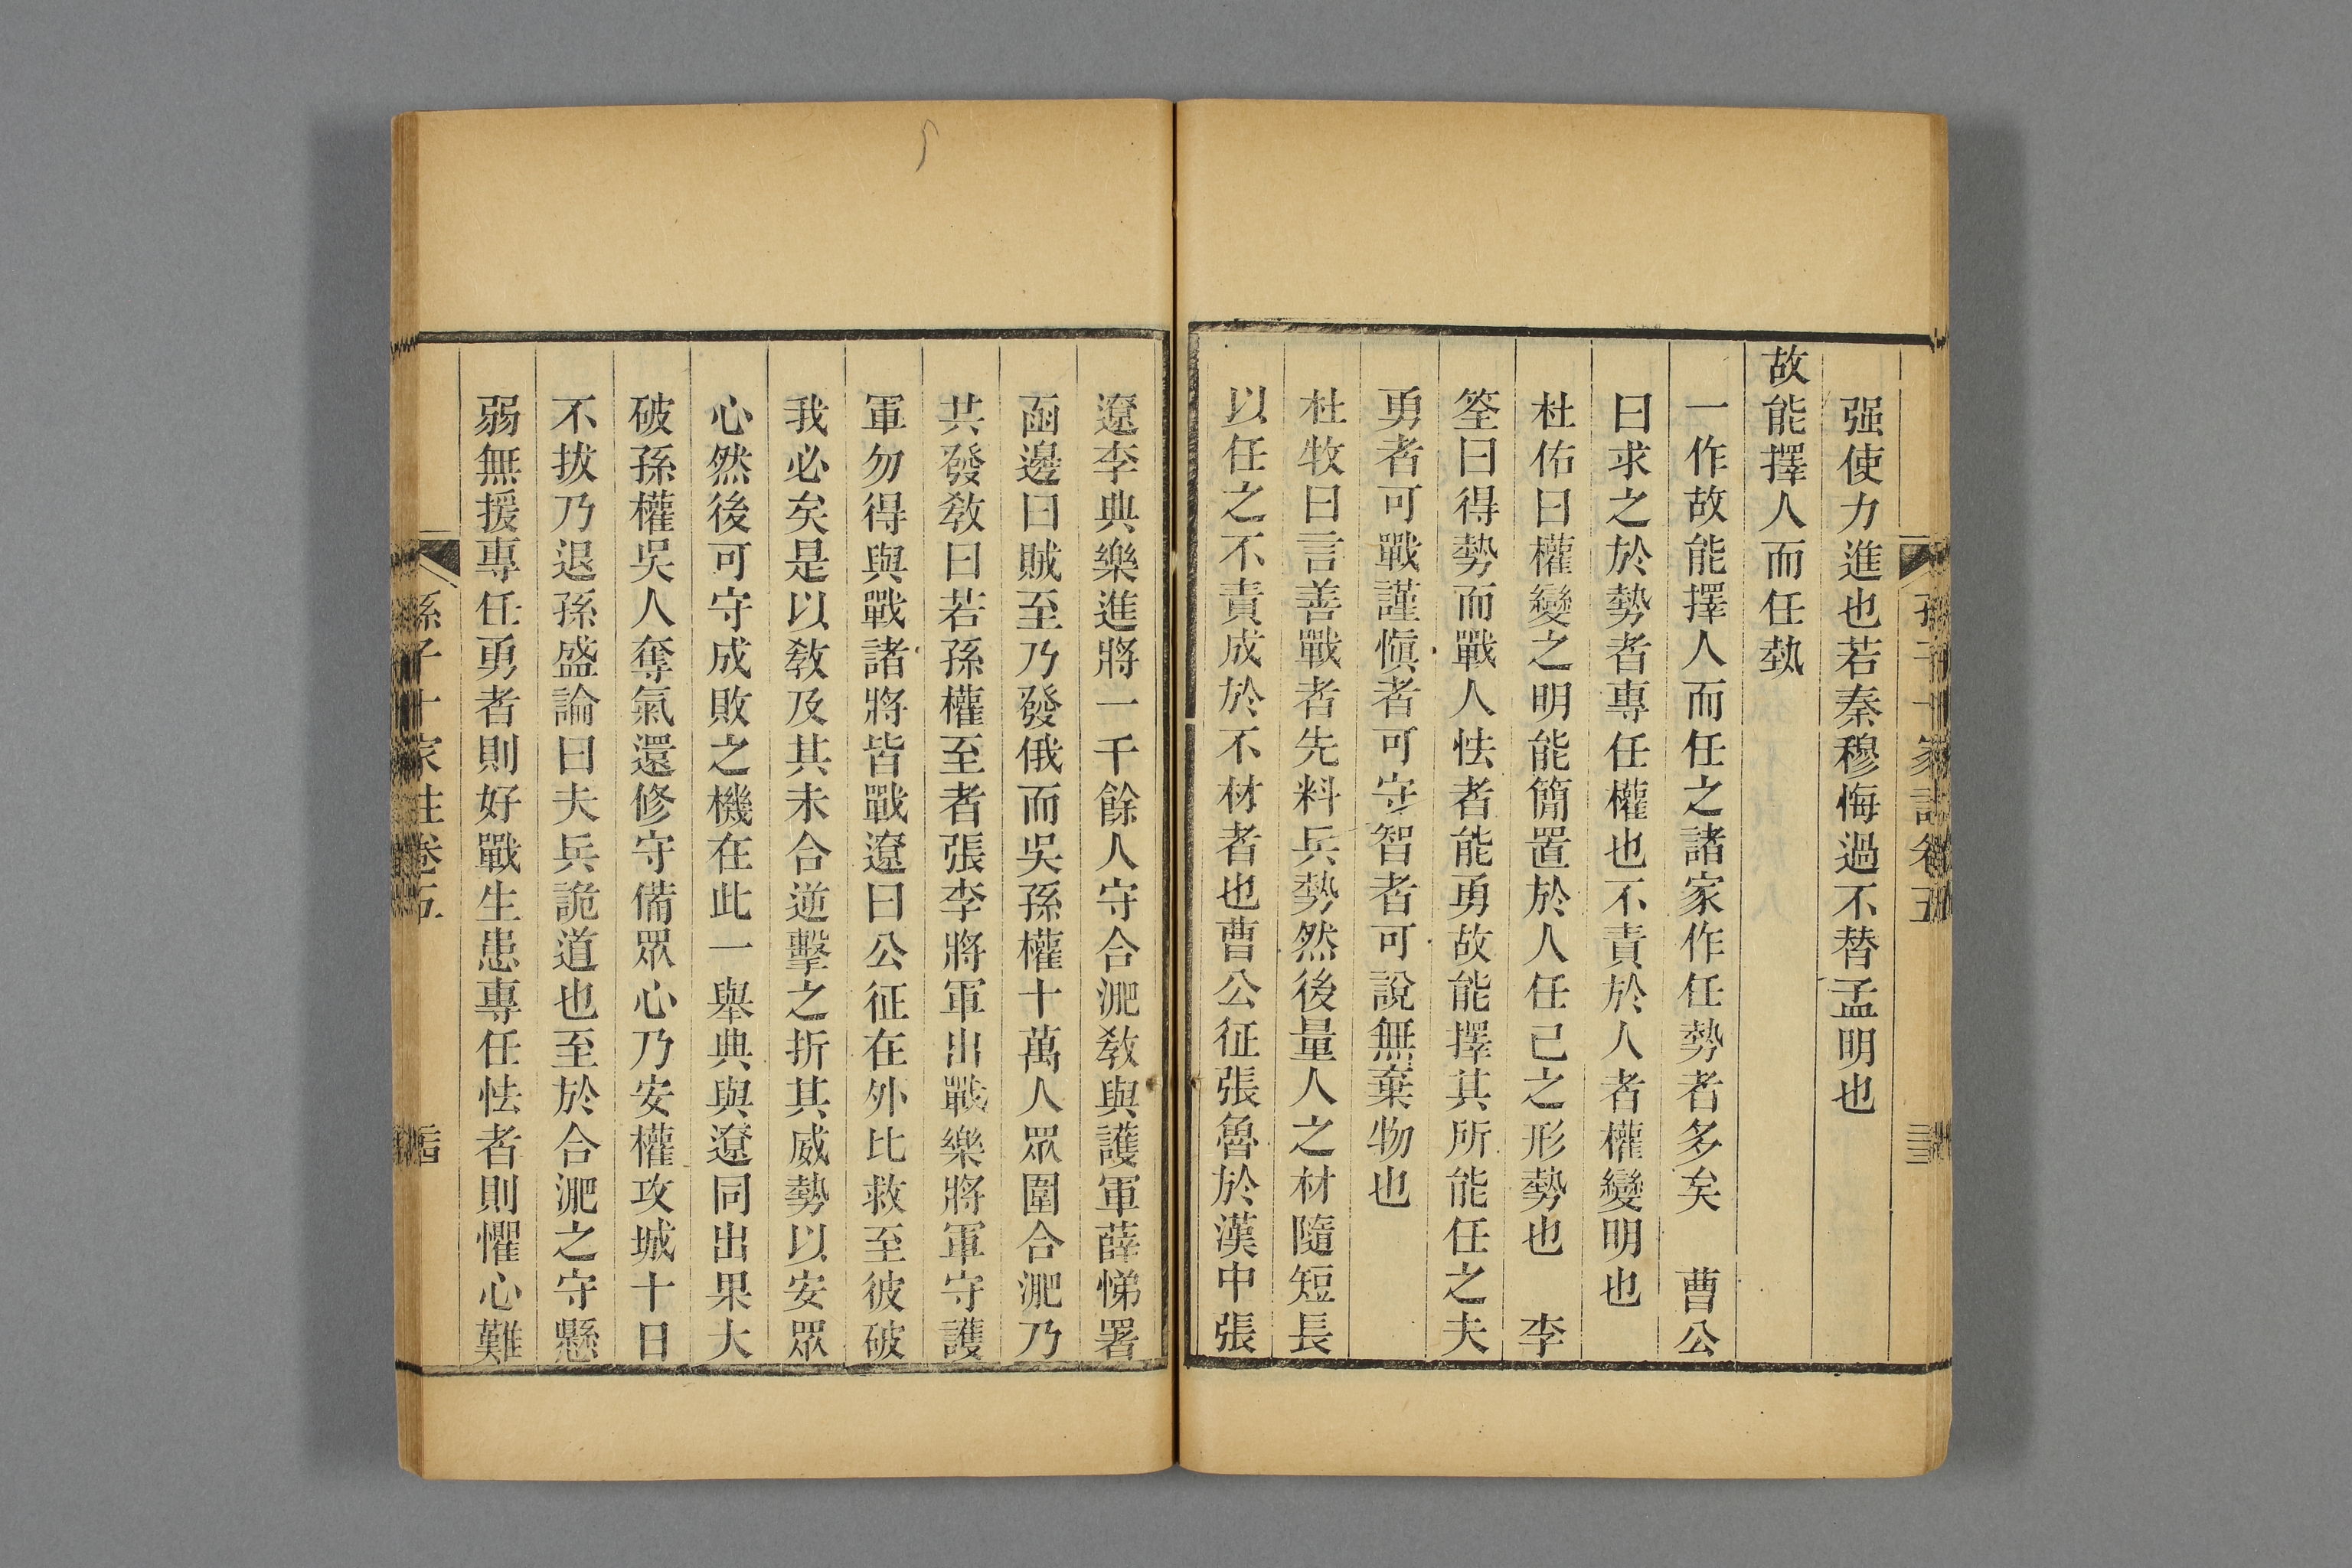 强使力進也若秦穆悔過不替孟明也
故能擇人而任埶
一作故能擇人而任之諸家作任勢者多矣　曹公
曰求之於勢者專任權也不責於人者權變明也
杜佑曰權變之明能簡置於人任己之形勢也　李
筌曰得勢而戰人怯者能勇故能擇其所能任之夫
勇者可戰謹愼者可守智者可說無棄物也
杜牧曰言善戰者先料兵勢然後量人之材隨短長
以任之不責成於不材者也曹公征張魯於漢中張
遼李典樂進將一千餘人守合淝敎與護軍薛悌署
函邊曰賊至乃發俄而吳孫權十萬人眾圍合淝乃
共發敎曰若孫權至者張李將軍出戰樂將軍守護
軍勿得與戰諸將皆戰遼曰公征在外比救至彼破
我必矣是以敎及其未合逆擊之折其威勢以安眾
心然後可守成敗之機在此一舉典與遼同出果大
破孫權吳人奪氣還修守備眾心乃安權攻城十日
不拔乃退孫盛論曰夫兵詭道也至於合淝之守懸
弱無援專任勇者則好戰生患專任怯者則懼心難
孫子十家註卷五